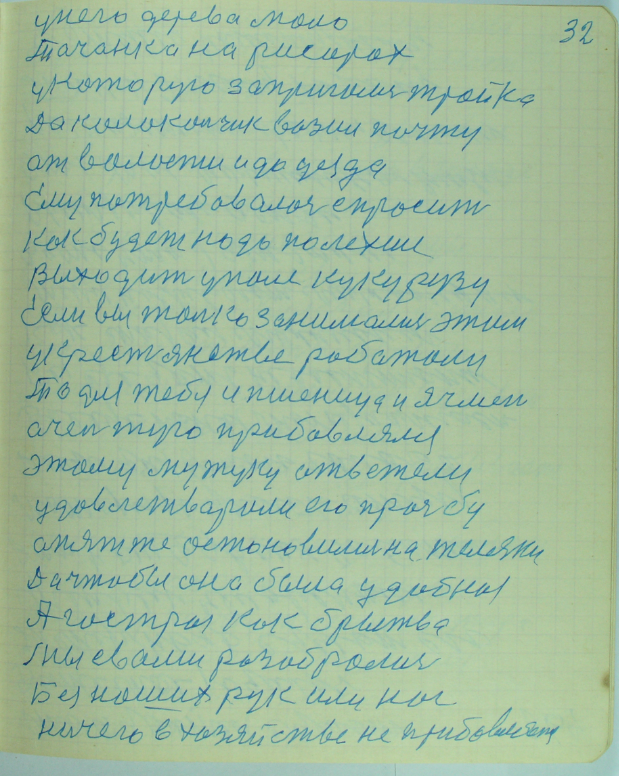 32
у него дерева мало
Тачанка на рисорах
у которую запригались тройка
Да колокольчик возил почту
от волости и до уезда
Ему потребовалося спросит
Как будет надо полехше
Выходит у поле кукурузу
Если вы только занимались этим
у крестянстве работали
То для тебя и пшеница и ячмен
очен туго прибавлялся
этому мужуку ответели
удовлетварили его прозбу
опятже остоновились на тележки
Да чтобы она была удобная
А гострая как брытва
Мы с вами розобрались
Без наших рук или ног
ничего в хозяйстве не прибовляется